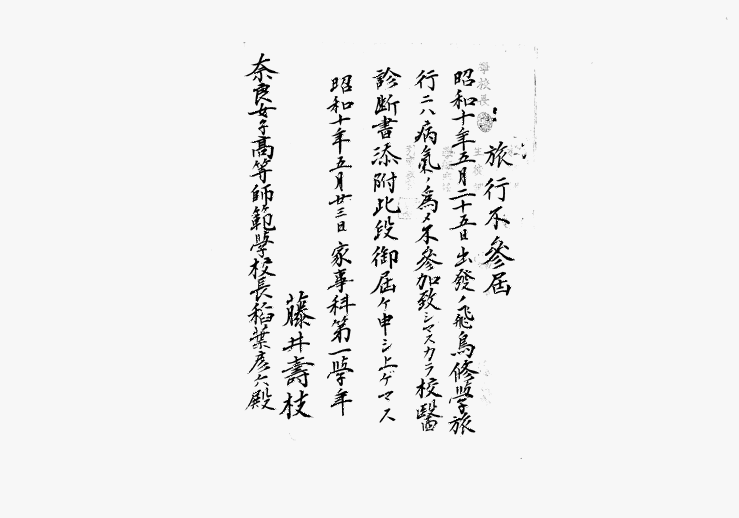 旅行不參屆
昭和十年五月二十五日出發ノ飛鳥修學旅
行ニハ病氣ノ爲メ不參加致シマスカラ校醫
診斷書添附此段御屆ケ申シ上ゲマス
昭和十年五月廿三日 家事科第一學年
藤井壽枝
奈良女子高等師範學校長稻葉彦六殿
學校長